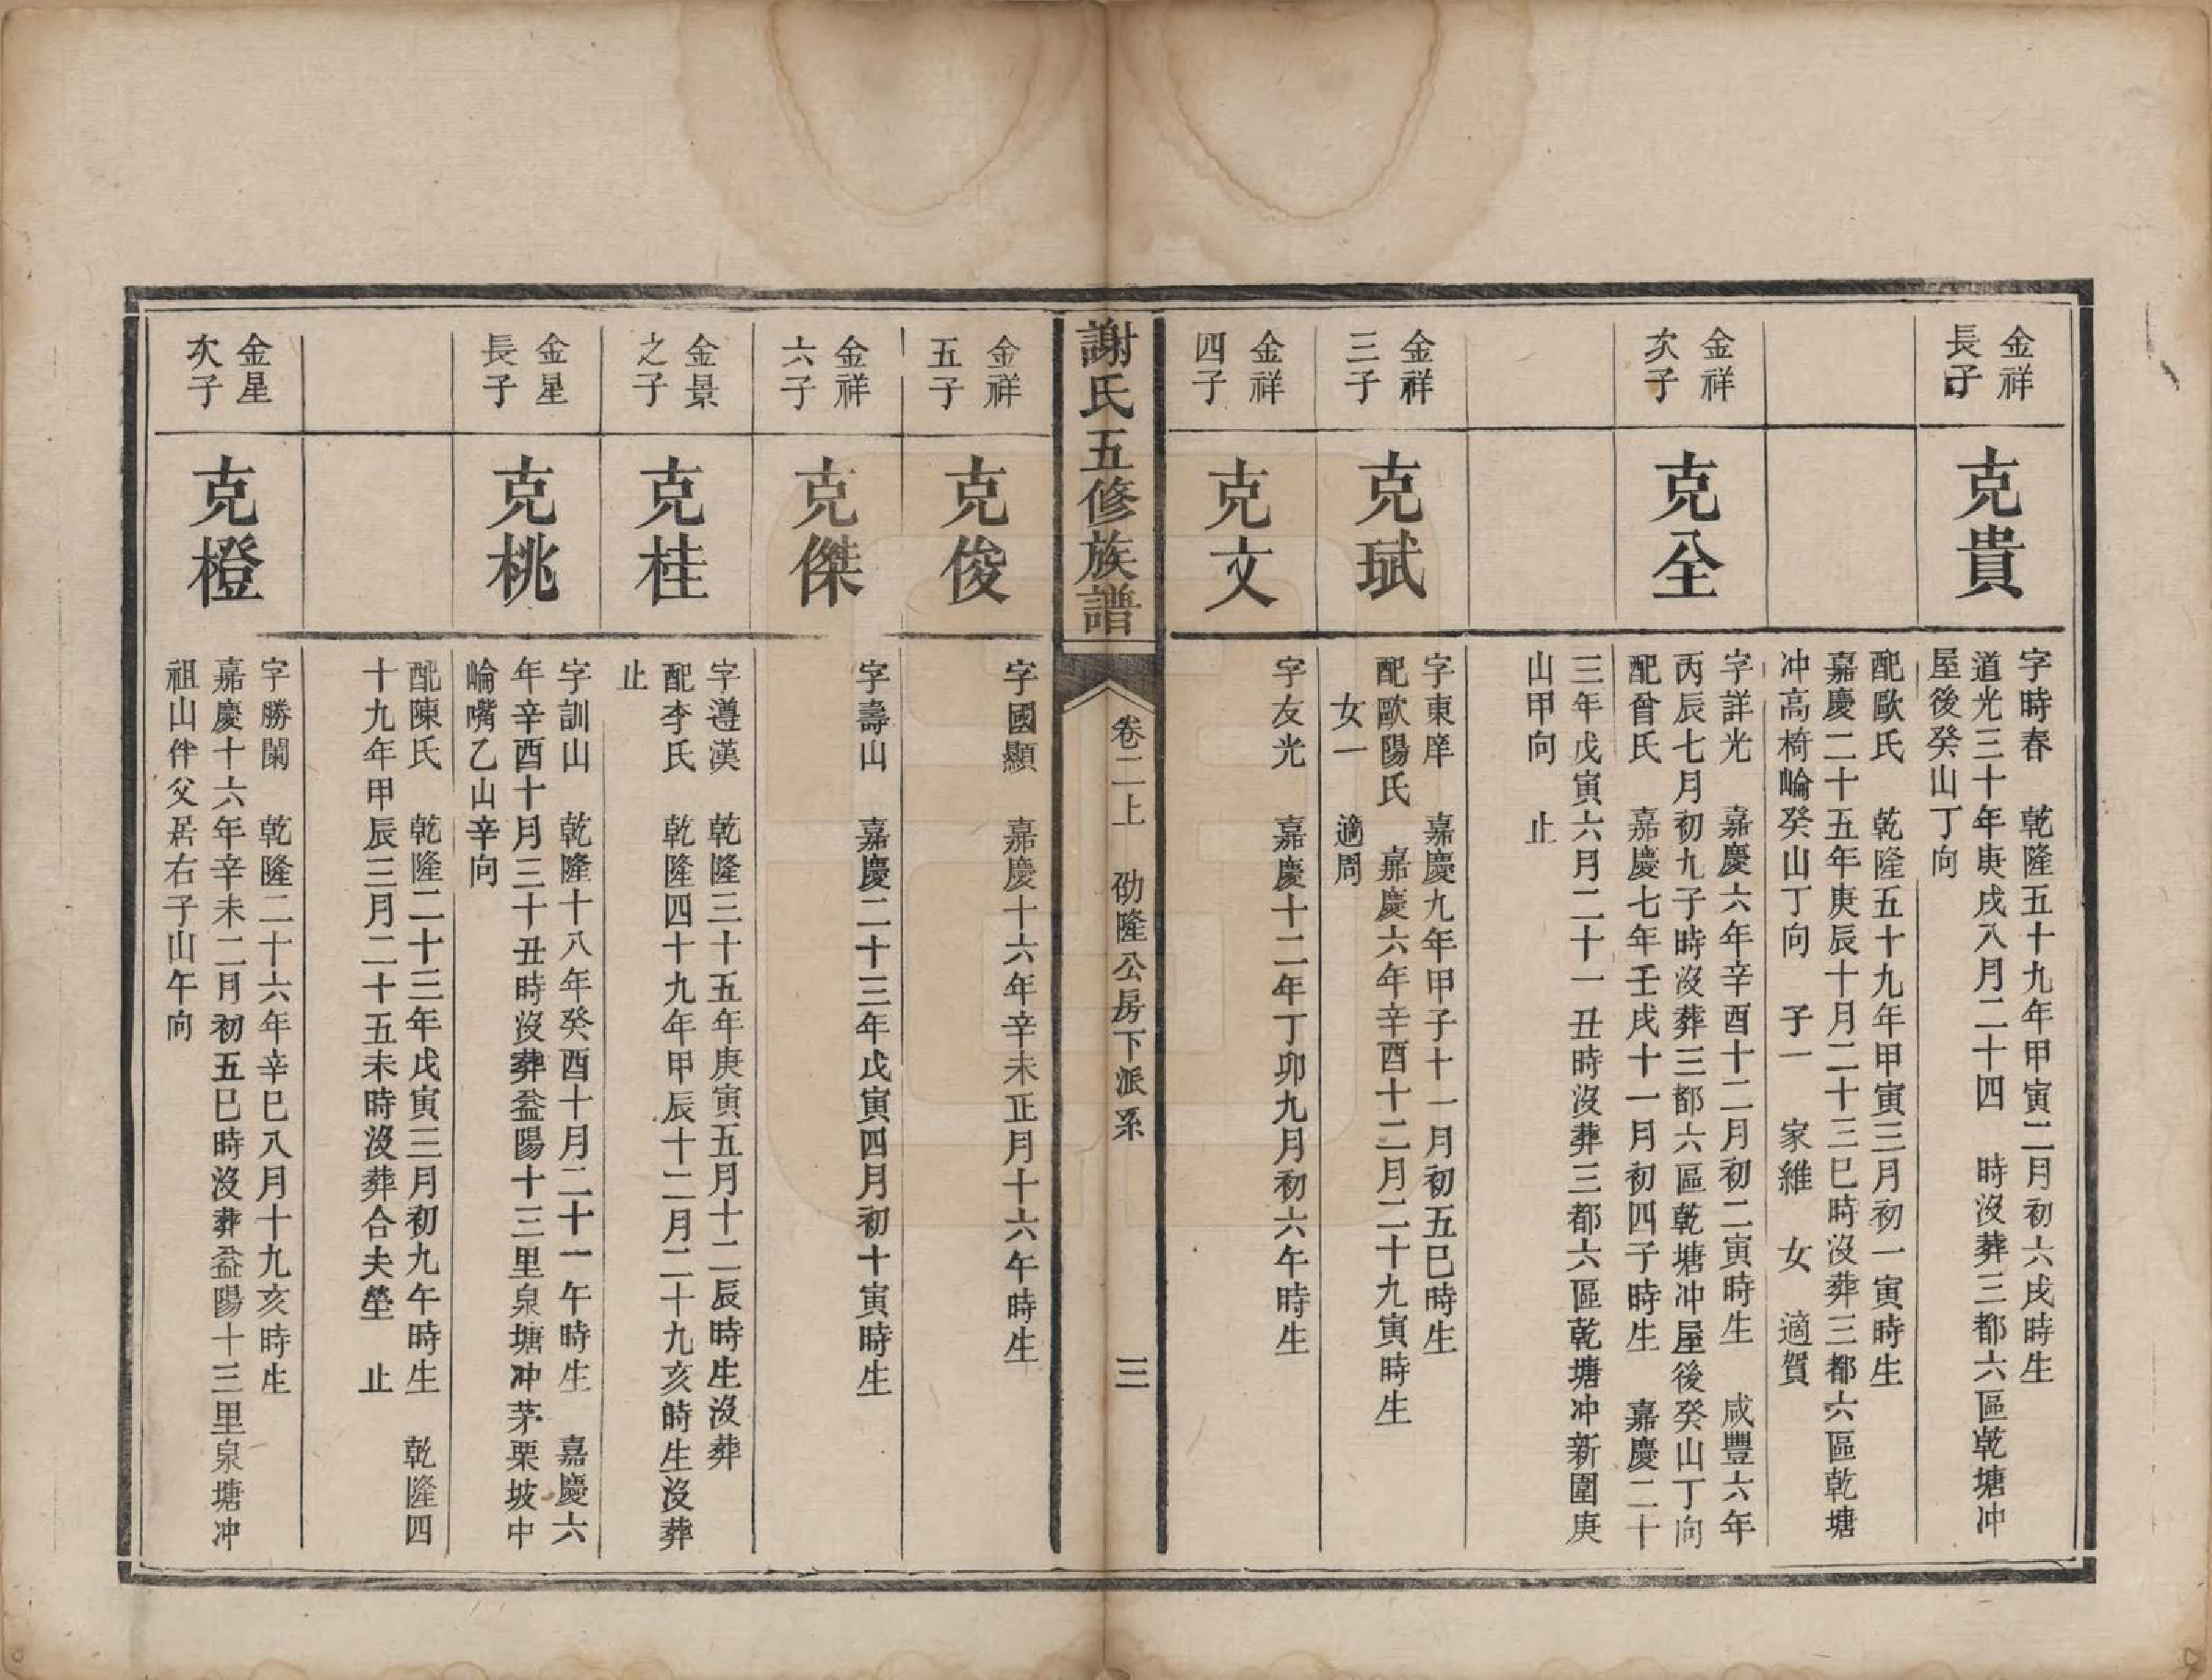 金祥
長子
克貴
字時春　乾隆五十九年甲寅二月初六戌時生
道光三十年庚戌八月二十四　時沒葬三都六區乾塘冲
屋後癸山丁向
配歐氏　乾隆五十九年甲寅三月初一寅時生
嘉慶二十五年庚辰十月二十三巳時沒葬三都六區乾塘
冲高椅崙癸山丁向　子一　家維　女　適賀
金祥
次子
克全
字詳光　嘉慶六年辛酉十二月初二寅時生　咸豐六年
丙辰七月初九子時沒葬三都六區乾塘冲屋後癸山丁向
配曾氏　嘉慶七年壬戌十一月初四子時生　嘉慶二十
三年戊寅六月二十一丑時沒葬三都六區乾塘冲新圍庚
山甲向　止
金祥
三子
克珷
字東庠　嘉慶九年甲子十一月初五巳時生
配歐陽氏　嘉慶六年辛酉十二月二十九寅時生
女一　適周
金祥
四子
克文
字友光　嘉慶十二年丁卯九月初六午時生
謝氏五修族譜
卷二上　劭隆公房下派系　三
金祥
五子
克俊
字國顯　嘉慶十六年辛未正月十六午時生
金祥
六子
克傑
字壽山　嘉慶二十三年戊寅四月初十寅時生
金景
之子
克桂
字遵漢　乾隆三十五年庚寅五月十二辰時生沒葬
配李氏　乾隆四十九年甲辰十二月二十九亥時生沒葬
止
金星
長子
克桃
字訓山　乾隆十八年癸酉十月二十一午時生　嘉慶六
年辛酉十月三十丑時沒葬益陽十三里泉塘冲茅栗坡中
崙嘴乙山辛向
配陳氏　乾隆二十三年戊寅三月初九午時生　乾隆四
十九年甲辰三月二十五未時沒葬合夫塋　止
金星
次子
克橙
字勝蘭　乾隆二十六年辛巳八月十九亥時生
嘉慶十六年辛未二月初五巳時沒葬益陽十三里泉塘冲
祖山伴父居右子山午向